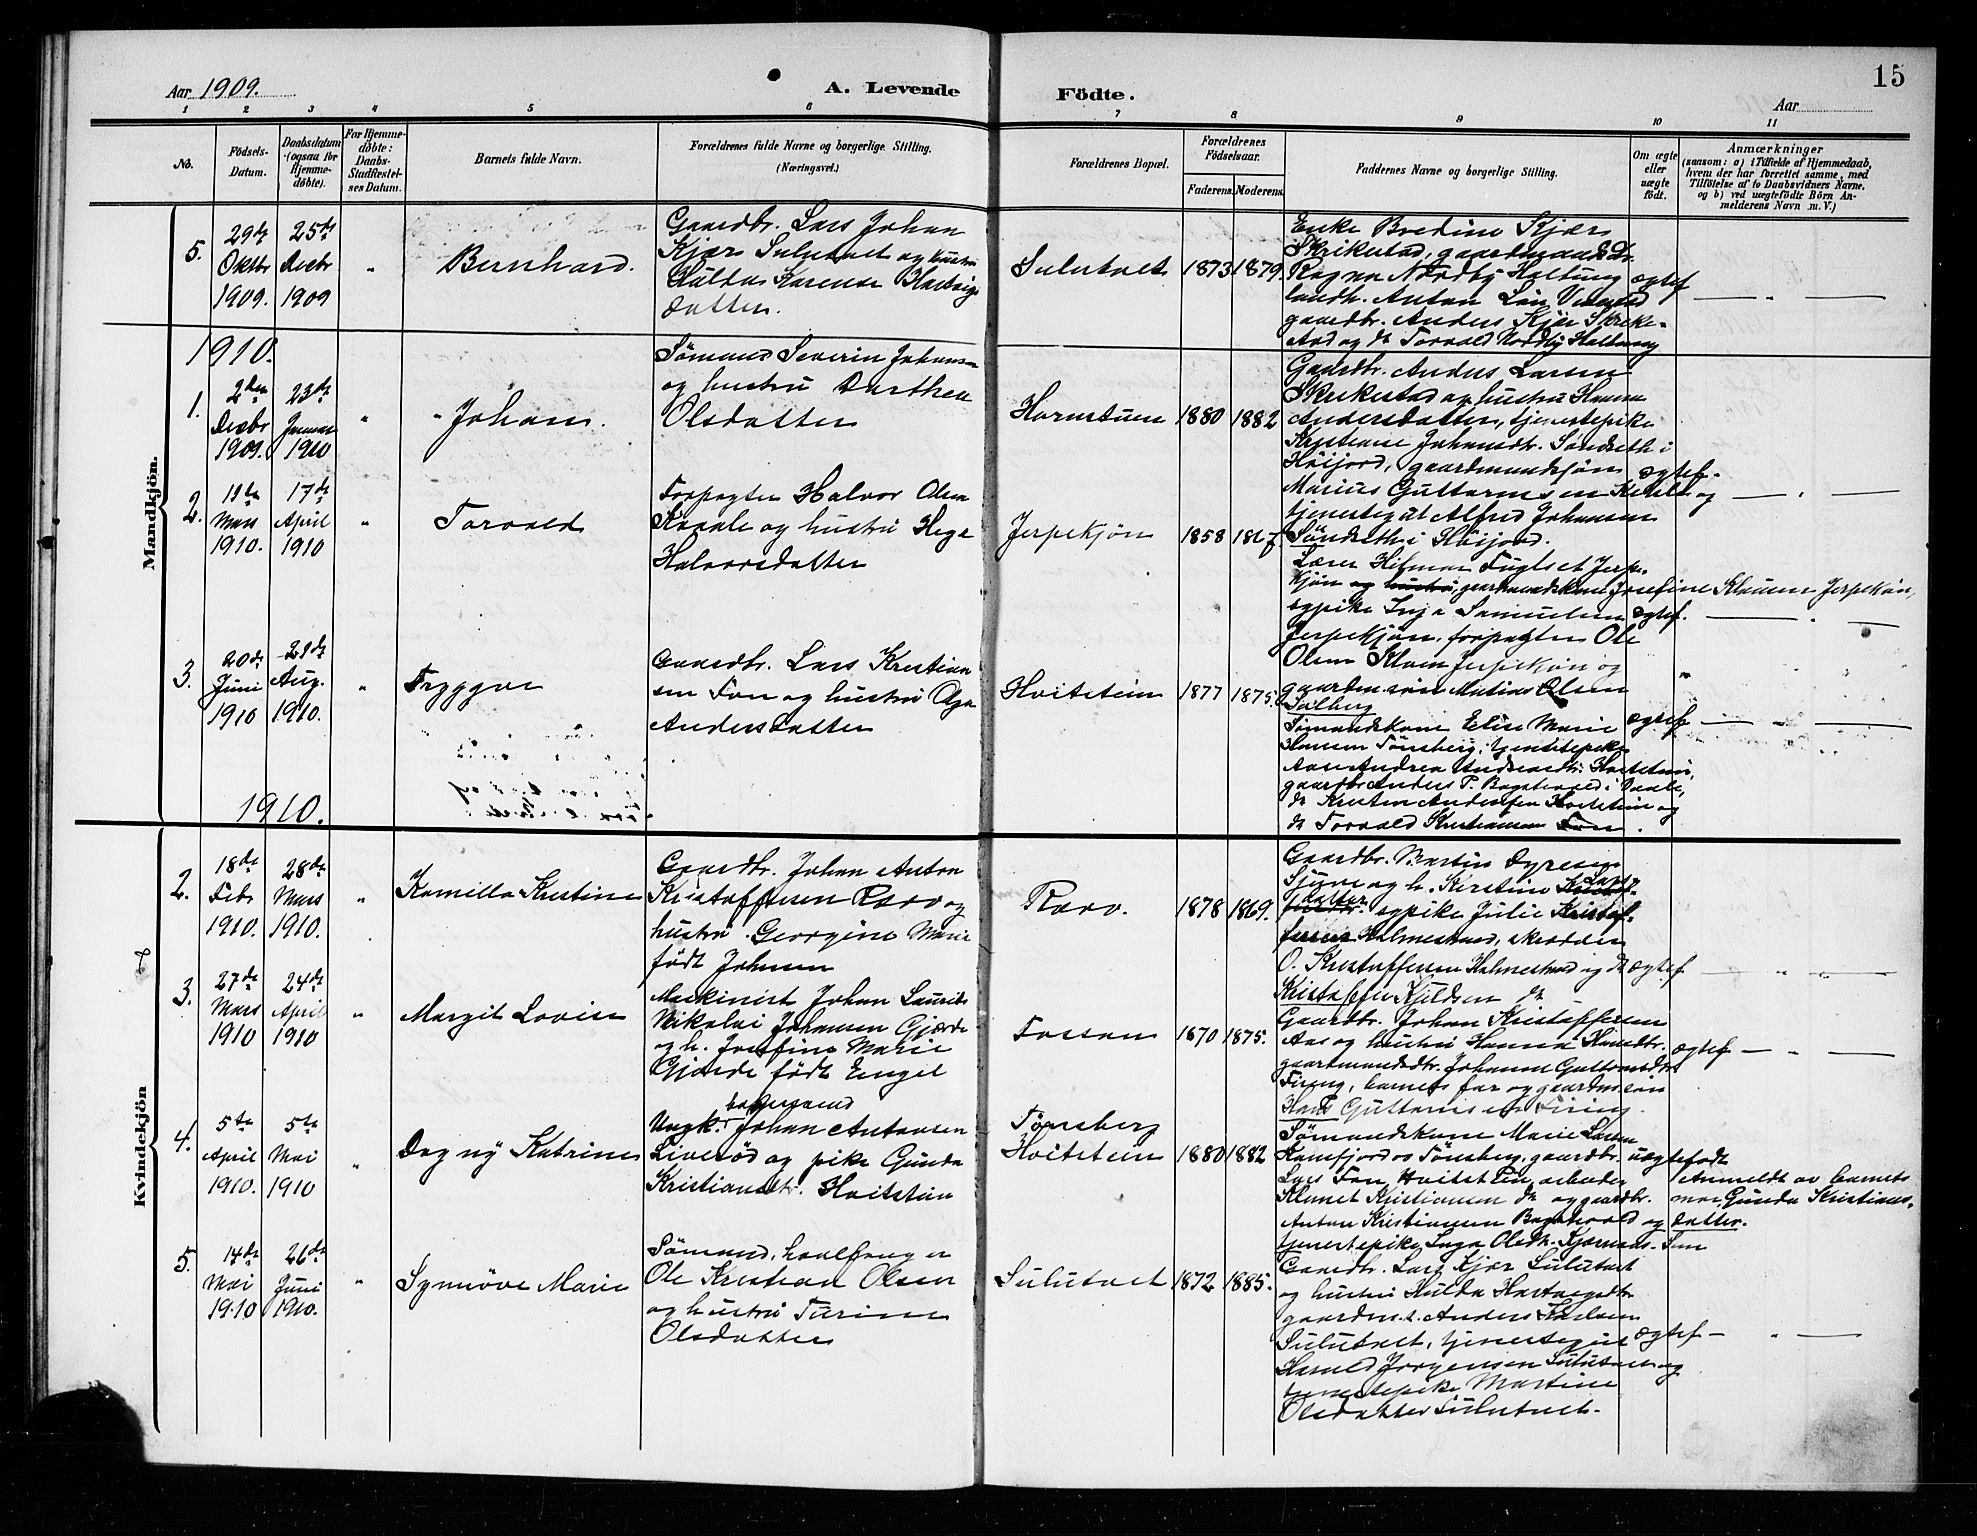 15
Aar 1909.
A. Levende
Födte.
Aar
1 2 3 4 5 6 7 8 9 10 11
No.
Födsels-
Datum.
Daabsdatum
(ogsaa for
Hjemme-
döbte).
For Hjemme-
döbte:
Daabs-
Stadfestel-
ses Datum.
Barnets fulde Navn.
Forældrenes fulde Navne og borgerlige Stilling.
(Næringsvei.)
Forældrenes Bopæl.
Forældrenes
Födselsaar.
Faderens. Moderens.
Faddernes Navne og borgerlige Stilling.
Om ægte
eller
uægte
födt.
Anmærkninger
(saasom: a) i Tilfælde af Hjemmedaab,
hvem der har forrettet samme, med
Tilföielse af to Daabsvidners Navne.
og b) ved uægtefödte Börn An-
melderens Navn m. V.)
Mandkjön.
5.
29de
Oktbr
1909.
25de
Decbr
1909
"
Bernhard.
Gaardbr. Lars Johan
Kjær Sulutvet og hustru
Hulda Karense Hartvigs
datter.
Sulutvet
1873 1879.
Enke Bredine Kjær
Skrikestad, gaardmandsdr.
Ragna Nordby Haltung
landh. Anton
gaardbr. Anders Kjær Skrike-
stad og do Torvald Nordby Haltung
ægtef
1910.
1.
2den
Decbr
1909.
23de
Januar
1910
"
Johan.
Sømand Severin Johansen
og hustru Dorthea
Olsdatter
Hornstuen
1880 1882
Gaardbr. Anders Larsen
Skrikestad og hustru Hanna
Andersdatter, tjenestepike
Kristiane Johansdtr. Søndseth i
Høijord, gaardmandssøn
Marius Guttormsen og
tjenestegut Alfred Johansen
Söndseth i Höijord.
ægtef.
2.
11te
Mars
1910.
17de
April
1910
"
Torvald
Forpagter Halvor Olsen
Kaale og hustru Hege
Halvorsdatter
Jerpekjøn
1858 1867.
Lærer Hilmar Fuglset Jerpe-
kjøn og hustru gaardmandskone Josefine Klauven Jerpekjøn,
pike Inga Samuelsen
Jerpekjøn, forpagter Ole
Olsen Klaven Jerpekjøn og
gaardm.søn Matias Olsen
Solberg
ægtef.
3.
20de
Juni
1910
21de
Aug.
1910.
"
Tryggve
Gaardbr. Lars Kristian
sen Fon og hustru Aga
Andersdatter
Hvitstein
1877 1875.
Sømandskone Elise Marie
Hansen Tønsberg, tjenestepike
Aase Andrea Andersdtr. Hvitstein,
gaardbr Anders P. Bagstevold i Vaale,
do Kristen Andersen Hvitstein og
do Torvald Kristiansen Fon.
ægtef
1910.
Kvindekjön
2.
18de
Febr
1910.
28de
Mars
1910.
"
Kamilla Kristine
Gaardbr. Johan Anton
Kristoffersen Ravo og
hustru Georgine Marie
født Johnsen
Ravo.
1878 1869.
Gaardbr. Martin Dyresen
og h. Kirstine Lars-
datter pike Julie Kristof-
fersen Holmestrand, skrædder
O. Kristoffersen Holmestrand og do
Kristoffer Kjeldsen do
ægtef
3.
27de
Mars
1910
24de
April
1910
"
Margit Lovise
Maskinist Johan Laurits
Nikolai Johansen Gjærde
og h. Josefine Marie
Gjærde født Engel
Fossan
1870 1875.
Gaardbr. Johan Kristoffersen
Aas og hustru Hanna Hansdtr.
gaardmandsdtr. Johanne Guttormsdtr
Firing, barnets far og gaardm. søn
Hans Guttormsen Firing.
ægtef
4.
5te
April
1910.
5te
Mai
1910
"
Dagny Katrine
Ungk. Johan Antonsen
Liverød og pike Gunda
Kristiansdtr. Hvitstein
Tønsberg
Hvitstein
1880 1882
Sømandskone Marie Larsen
Tønsberg, gaardbr.
Lars Fon Hvitstein, arbeider
Klemet Kristiansen do og gaardbr.
Anton Kristiansen Bagstevold og
tjenestepike Inga Olsdtr.
uægtefødt
Anmeldt av barnets
mor Gunda Kristians-
datter.
5.
14de
Mai
1910
26de
Juni
1910.
"
Synnøve Marie
Sømand, hvalfanger
Ole Kristian Olsen
og hustru Turine
Olsdatter
Sulutvet
1872 1885.
Gaardbr. Lars Kjær Sulutvet
og hustru Hulda Hartvigsdtr
gaardm.s. Anders Karlsen
Sulutvet, tjenestegut
Harald Jørgensen Sulutvet og
tjenestepike Martine
Olsdatter Sulutvet.
ægtef